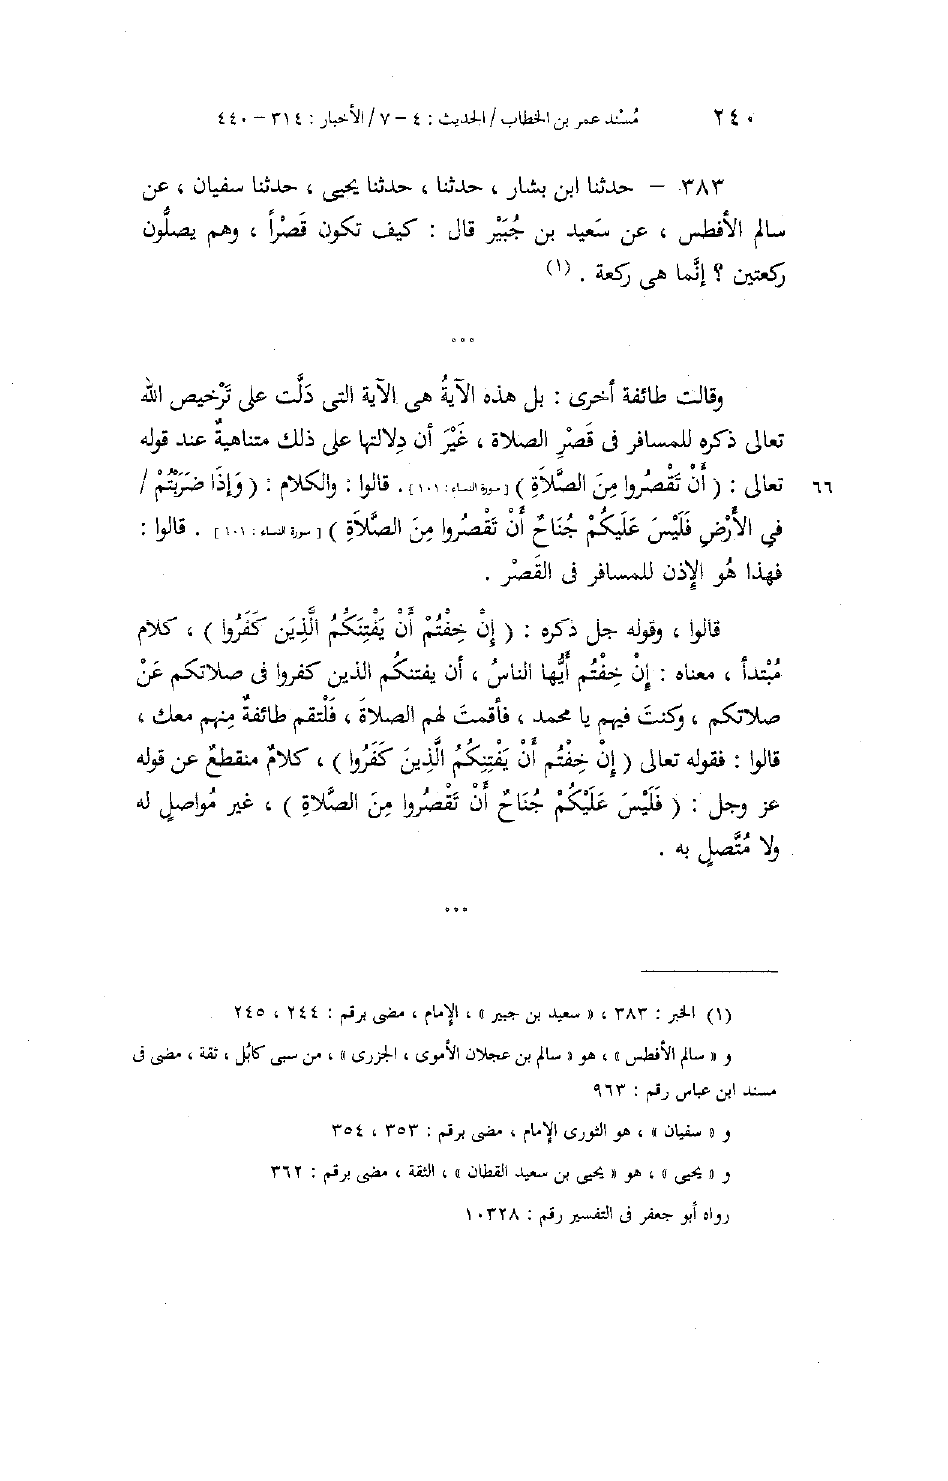 ٢٤٠ مُسْند عمر بن الخطاب / الحديث : ٤ – ٧ / الأخبار : ٣١٤ – ٤٤٠
٣٨٣ – حدثنا ابن بشار ، حدثنا ، حدثنا يحيى ، حدثنا سفيان ، عن
سالم الأفطس ، عن سَعيد بن جُبَيْر قال : كيف تكون قَصْراً ، وهم يصلُّون
ركعتين ؟ إنَّما هى ركعة . (١)
°°°
وقالت طائفة أخرى : بل هذه الآيةُ هى الآية التى دَلَّت على تَرْخيص الله
تعالى ذكره للمسافر فى قَصْرِ الصلاة ، غَيْرَ أن دِلالتها على ذلك متناهيةٌ عند قوله
تعالى : ( أَنْ تَقْصُرُوا مِنَ الصَّلَاةِ ) [ سورة النساء : ١٠١ ] . قالوا : والكلام : ( وَإِذَا ضَرَبْتُمْ / ٦٦
فِي الأَرْضِ فَلَيْسَ عَلَيكُمْ جُنَاحٌ أَنْ تَقْصُرُوا مِنَ الصَّلَاةِ ) [ سورة النساء : ١٠١ ] . قالوا :
فهذا هُو الإذن للمسافر فى القَصْر .
قالوا ، وقوله جل ذكره : ( إِنْ خِفْتُمْ أَنْ يَفْتِنَكُمُ الَّذِيَن كَفَرُوا ) ، كلام
مُبْتدأ ، معناه : إنْ خِفْتُم أيُّها الناسُ ، أن يفتنكُم الذين كفروا فى صلاتكم عَنْ
صلاتكم ، وكنتَ فيهم يا محمد ، فأقمتَ لهم الصلاةَ ، فَلْتقم طائفةٌ مِنهم معك ،
قالوا : فقوله تعالى ( إِنْ خِفْتُم أَنْ يَفْتِنَكُمُ الَّذِينَ كَفَرُوا ) ، كلامٌ منقطعٌ عن قوله
عز وجل : ( فَلَيْسَ عَلَيْكُمْ جُنَاحٌ أَنْ تَقْصُرُوا مِنَ الصَّلاةِ ) ، غير مُواصلٍ له
ولا مُتَّصلٍ به .
°°°
(١) الخبر : ٣٨٣ ، « سعيد بن جبير » ، الإمام ، مضى برقم : ٢٤٤ ، ٢٤٥
و « سالم الأفطس » ، هو « سالم بن عجلان الأموى ، الجزرى » ، من سبى كابُل ، ثقة ، مضى فى
مسند ابن عباس رقم : ٩٦٣
و « سفيان » ، هو الثورى الإمام ، مضى برقم : ٣٥٣ ، ٣٥٤
و « يحيى » ، هو « يحيى بن سعيد القطان » ، الثقة ، مضى برقم : ٣٦٢
رواه أبو جعفر فى التفسير رقم : ١٠٣٢٨